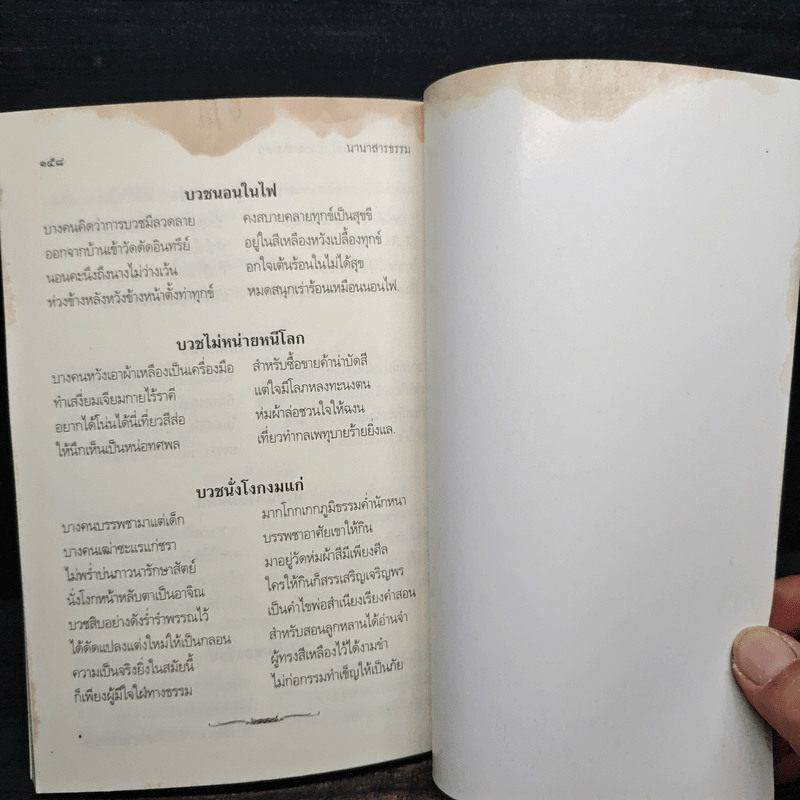 ๑๕๘ นานาสารธรรม
บวชนอนในไฟ
บางคนคิดว่าการบวชมีลวดลาย คงสบายคลายทุกข์เป็นสุขขี
ออกจากบ้านเข้าวัดตัดอินทรีย์ อยู่ในสีเหลืองหวังเปลื้องทุกข์
นอนคะนึงถึงนางไม่ว่างเว้น อกใจเต้นร้อนในไม่ได้สุข
ห่วงข้างหลังหวังข้างหน้าตั้งท่าทุกข์ หมดสนุกเร่าร้อนเหมือนนอนไฟ.
บวชไม่หน่ายหนีโลก
บางคนหวังเอาผ้าเหลืองเป็นเครื่องมือ สำหรับซื้อขายค้าน่าบัดสี
ทำเสงี่ยมเจียมกายไร้ราคี แต่ใจมีโลภหลงทะนงตน
อยากได้โน่นได้นี่เที่ยวสีส่อ ห่มผ้าล่อชวนใจให้ฉงน
ให้นึกเห็นเป็นหน่อทศพล เที่ยวทำกลเพทุบายร้ายยิ่งแล.
บวชนั่งโงกงมแก่
บางคนบรรพชามาแต่เด็ก มากโกกเกกภูมิธรรมค่ำนักหนา
บางคนเฒ่าชะแรแก่ชรา บรรพชาอาศัยเขาให้กิน
ไม่พร่ำบ่นภาวนารักษาสัตย์ มาอยู่วัดห่มผ้าสีมีเพียงศีล
นั่งโงกหน้าหลับตาเป็นอาจิณ ใครให้กินก็สรรเสริญเจริญพร
บวชสิบอย่างดังร่ำรำพรรณไว้ เป็นคำไขพ่อสำเนียงเรียงคำสอน
ได้ดัดแปลงแต่งใหม่ให้เป็นกลอน สำหรับสอนลูกหลานได้อ่านจำ
ความเป็นจริงยิ่งในสมัยนี้ ผู้ทรงสีเหลืองไว้ได้งามขำ
ก็เพียงผู้มีใจใฝ่ทางธรรม ไม่ก่อกรรมทำเข็ญให้เป็นภัย